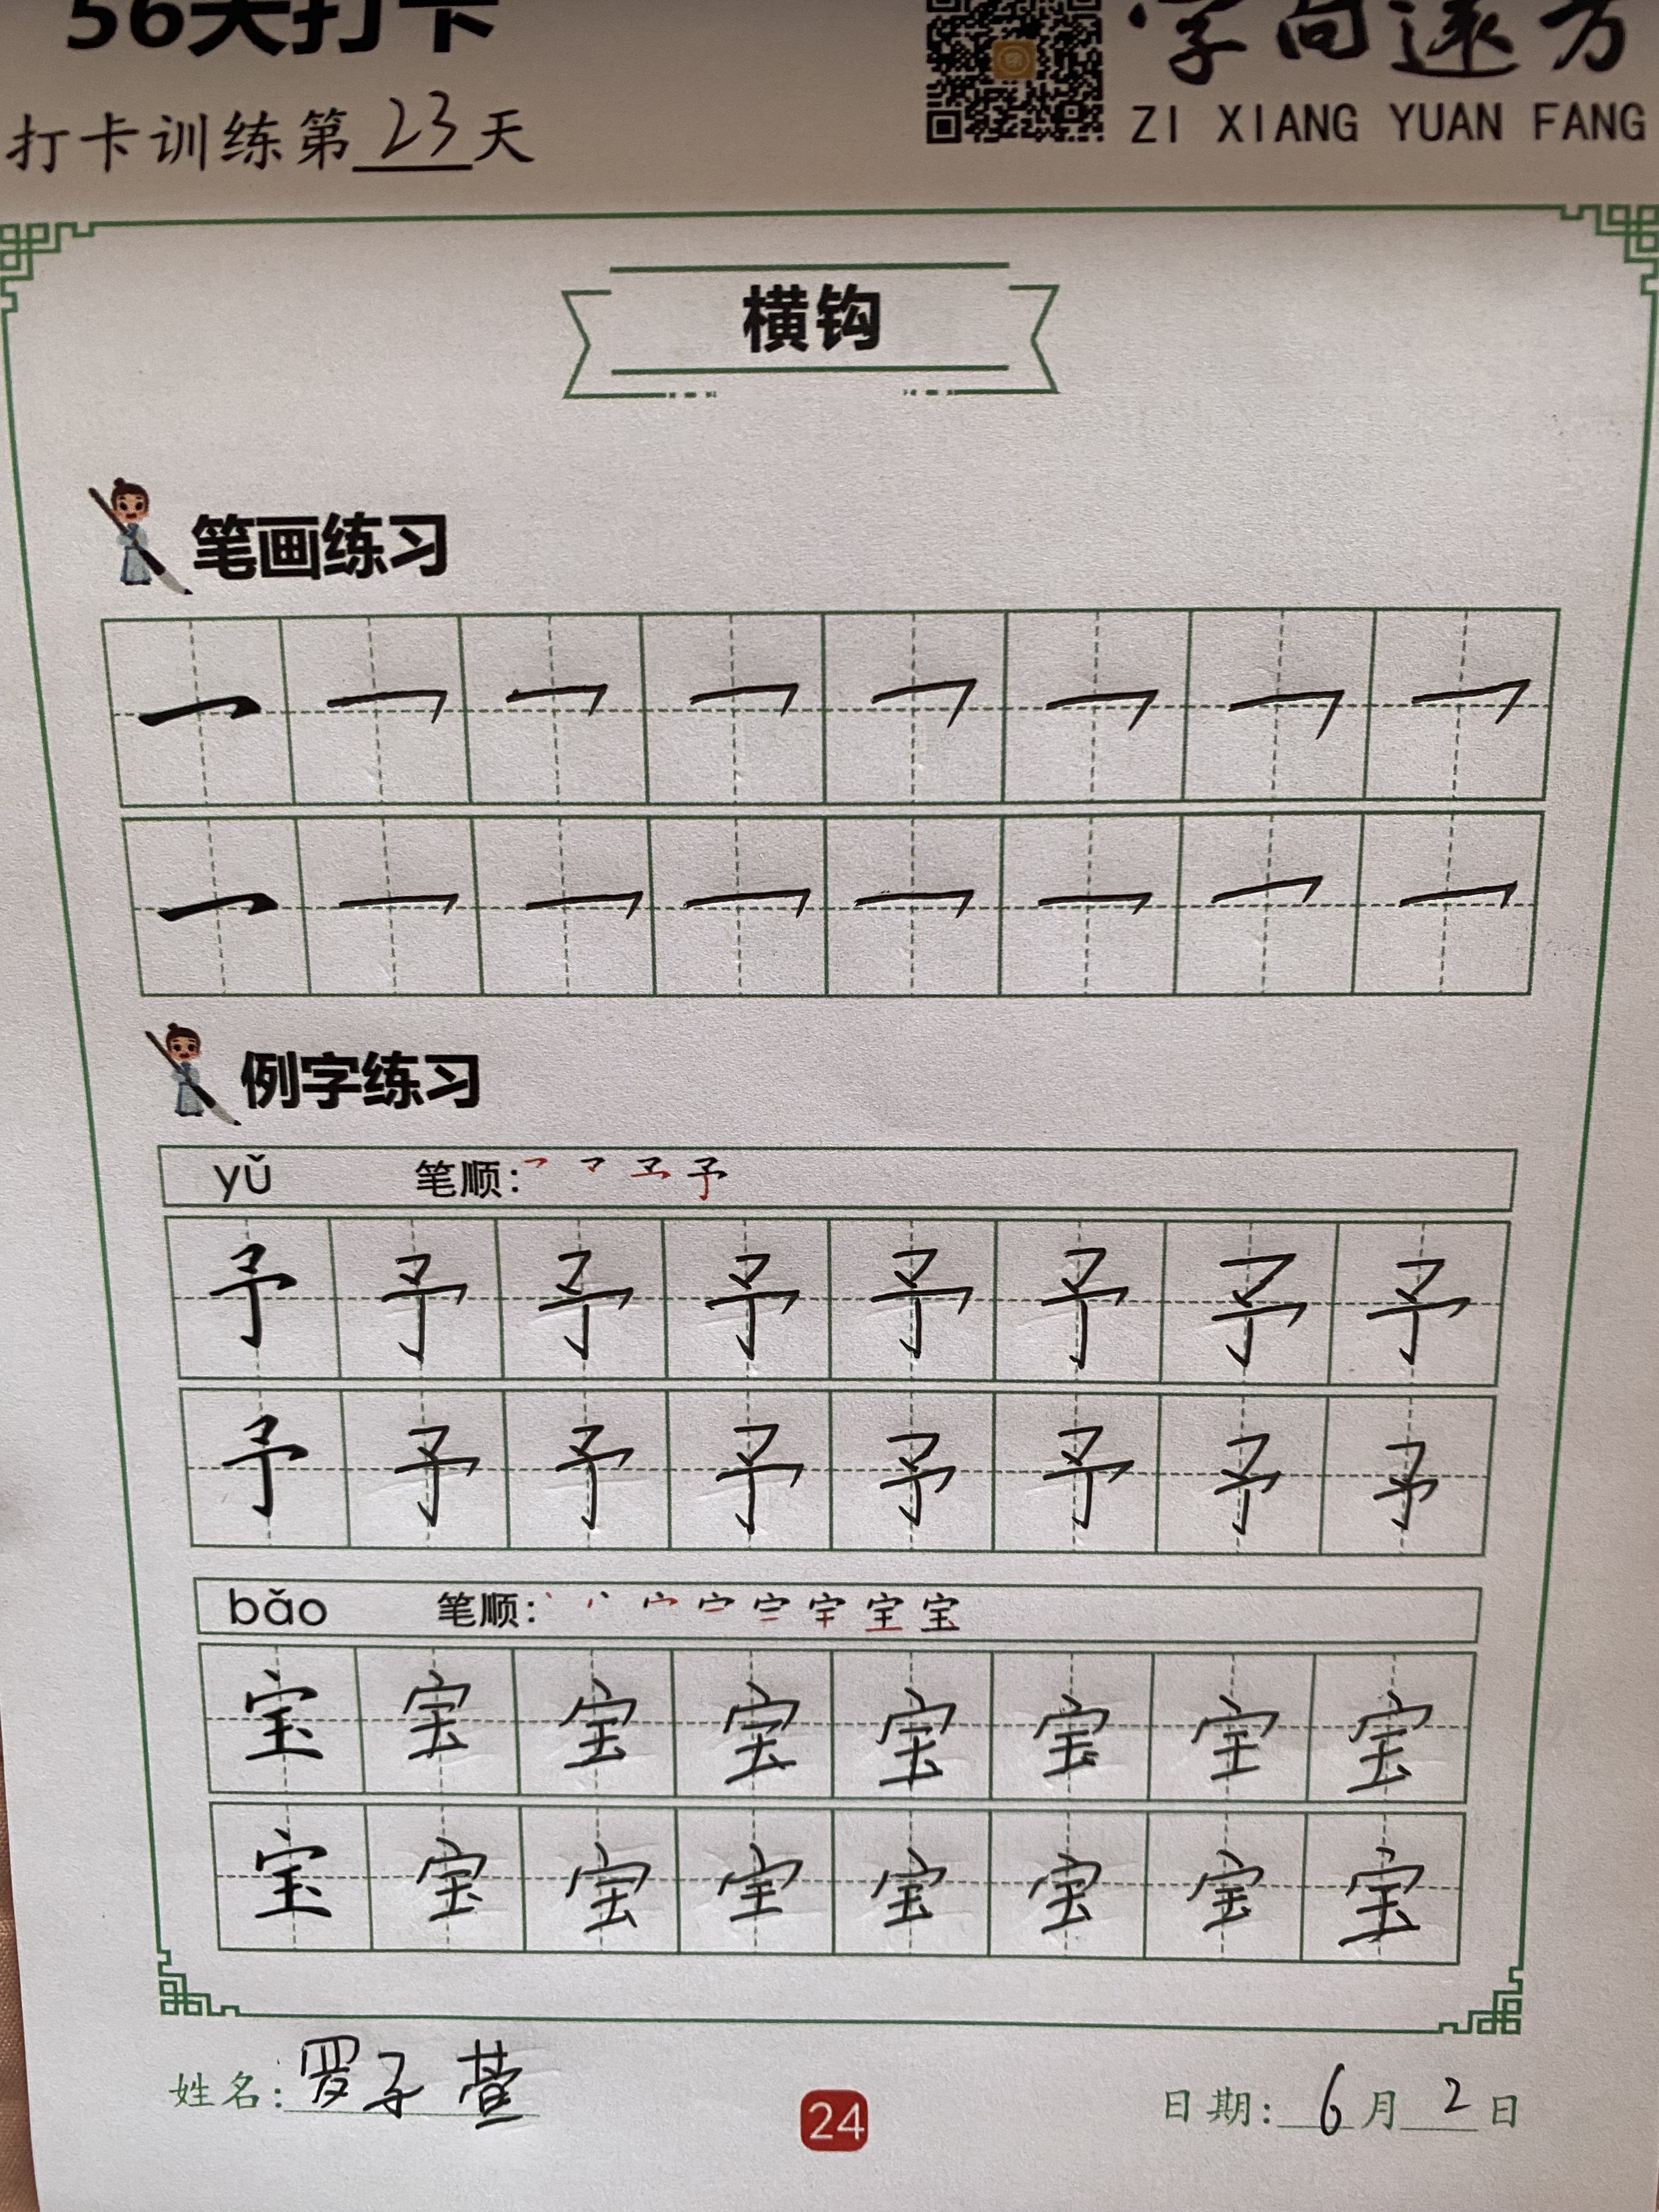 56天打卡
字向远方
打卡训练第23天
ZI XIANG YUAN FANG
横钩
笔画练习
例字练习
yǔ 笔顺:
予 予 予 予 予 予 予 予
予 予 予 予 予 予 予 予
bǎo 笔顺:
宝 宝 宝 宝 宝 宝 宝 宝
宝 宝 宝 宝 宝 宝 宝 宝
姓名: 罗子萱
24
日期: 6月2日